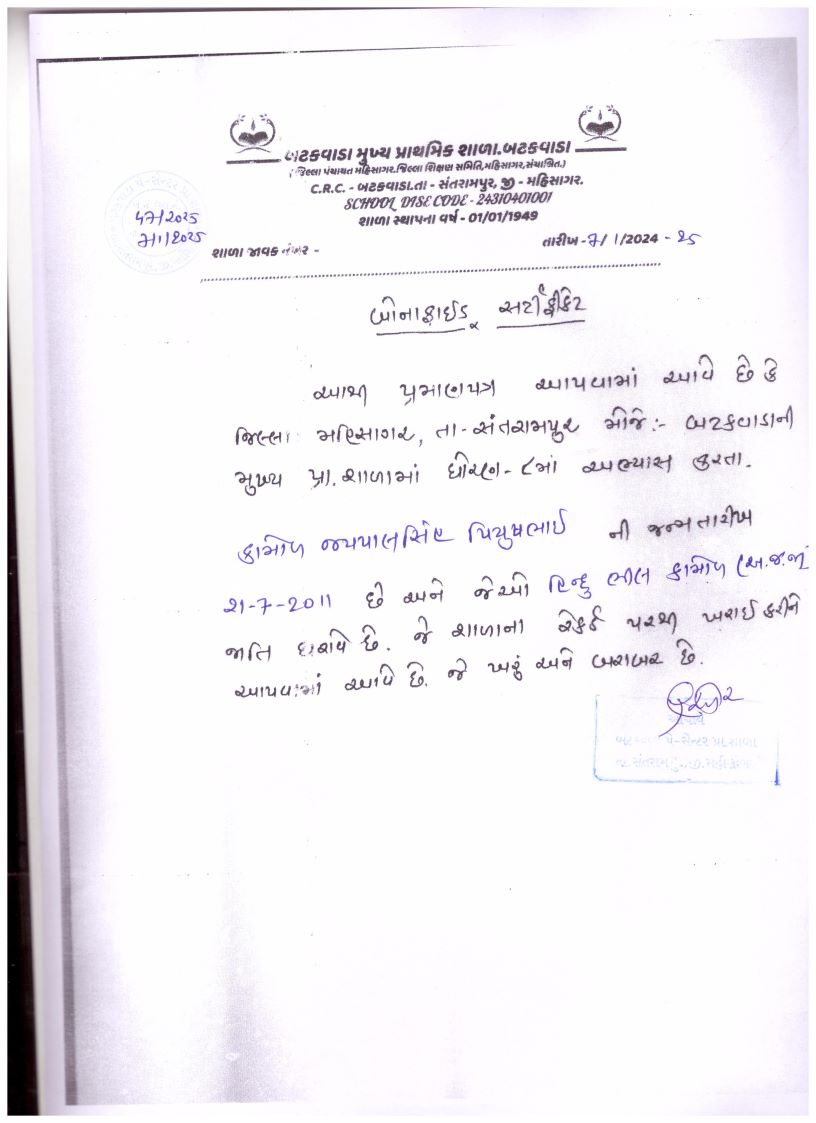 બટકવાડા મુખ્ય પ્રાથમિક શાળા.બટકવાડા
(જિલ્લા પંચાયત મહિસાગર.જિલ્લા શિક્ષણ સમિતિ,મહિસાગર,સંચાલિત.)
C.R.C. - બટકવાડા.તા - સંતરામપુર, જી - મહિસાગર.
SCHOOL DISE CODE - 24310401001
શાળા સ્થાપના વર્ષ - 01/01/1949
47/2025
7/1/2025
શાળા જાવક નંબર -
તારીખ -7/1/2024 - 25
બોનાફાઈડ સર્ટીફીકેટ
આથી પ્રમાણપત્ર આપવામાં આવે છે કે
જિલ્લા મહિસાગર, તા-સંતરામપુર મોજે:- બટકવાડાની
મુખ્ય પ્રા.શાળામાં ધોરણ-૮માં અભ્યાસ કરતા.
ડામોળ જયપાલસિંહ પિયુષભાઈ ની જન્મતારીખ
21-7-2011 છે અને જેઓ હિન્દુ ભીલ ડામોળ (અ.જ.જા)
જાતિ ધરાવે છે. જે શાળાના રેકર્ડ પરથી ખરાઈ કરીને
આપવામાં આવે છે. જે ખરું અને બરાબર છે.
આચાર્ય
પે-સેન્ટર પ્રા.શાળા